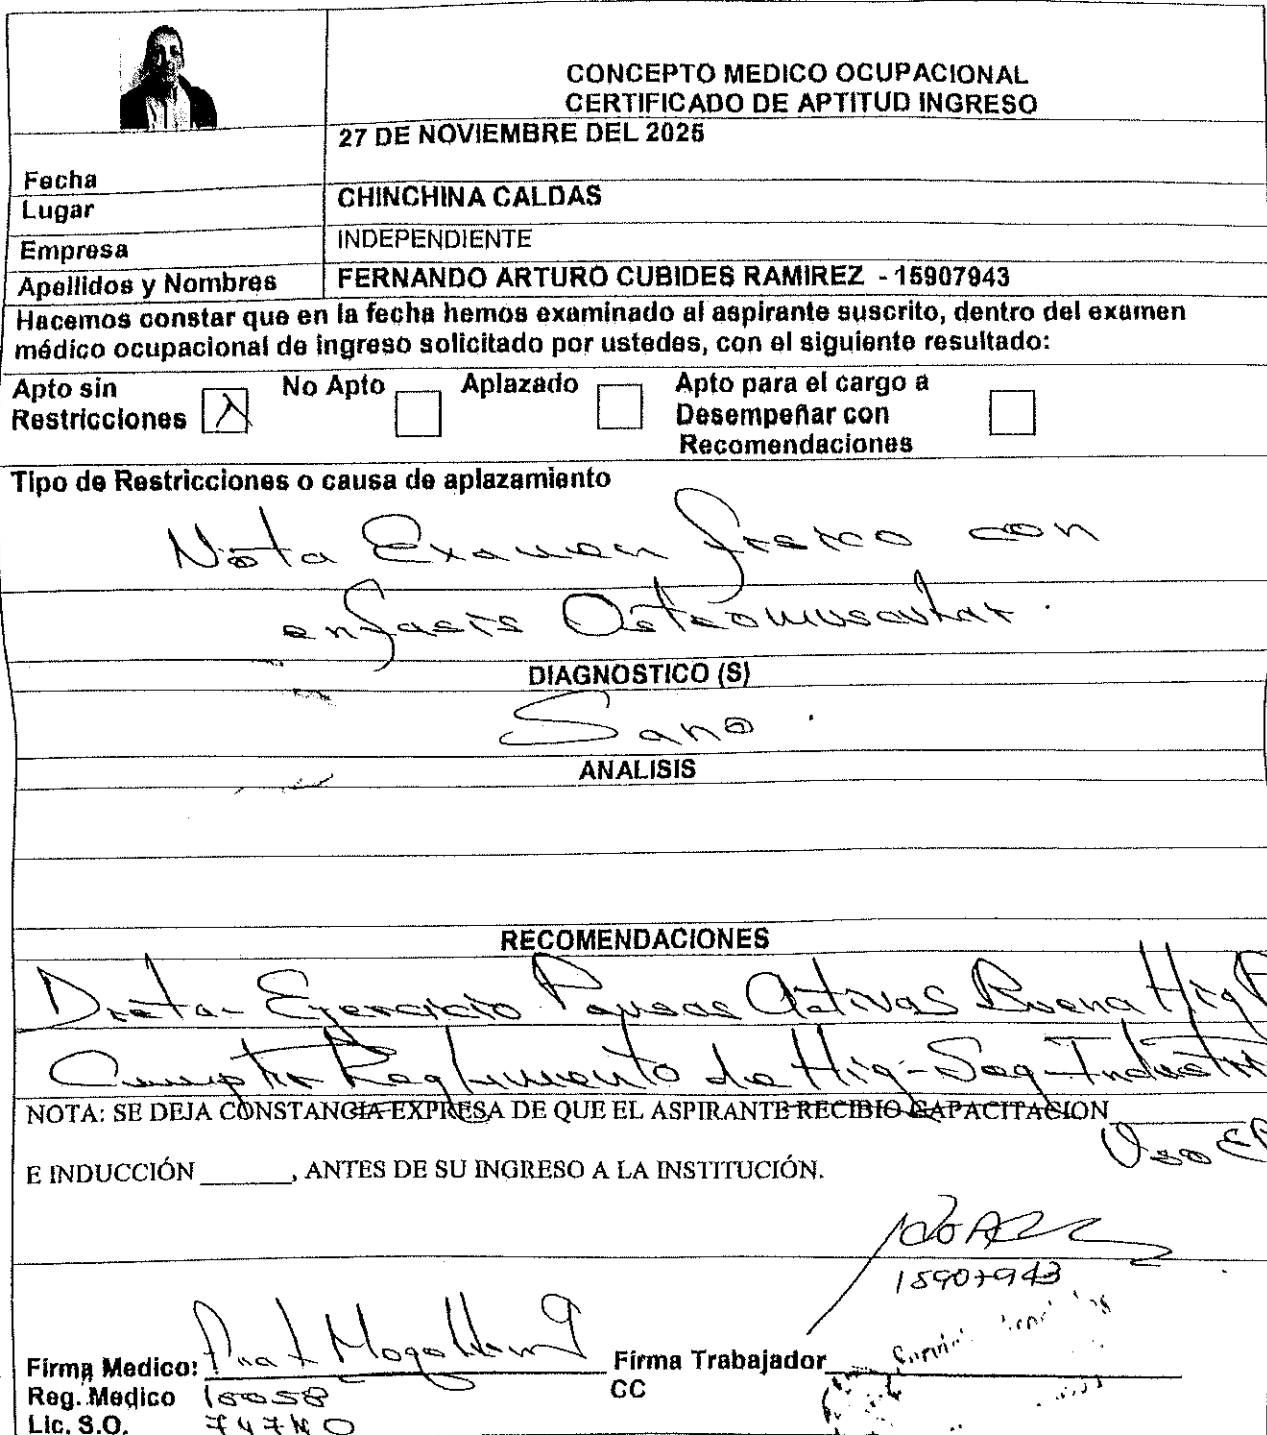 CONCEPTO MEDICO OCUPACIONAL
CERTIFICADO DE APTITUD INGRESO
Fecha 27 DE NOVIEMBRE DEL 2025
Lugar CHINCHINA CALDAS
Empresa INDEPENDIENTE
Apellidos y Nombres FERNANDO ARTURO CUBIDES RAMIREZ - 15907943
Hacemos constar que en la fecha hemos examinado al aspirante suscrito, dentro del examen
médico ocupacional de ingreso solicitado por ustedes, con el siguiente resultado:
Apto sin Restricciones X No Apto Aplazado Apto para el cargo a Desempeñar con Recomendaciones
Tipo de Restricciones o causa de aplazamiento
Nota Examen fisico con
enfasis Osteomuscular.
DIAGNOSTICO (S)
Sano.
ANALISIS
RECOMENDACIONES
Dieta - Ejercicio Pausas Activas Buena Hig
Cumplir Reglamento de Hig-Seg-Industri
NOTA: SE DEJA CONSTANCIA EXPRESA DE QUE EL ASPIRANTE RECIBIO CAPACITACION
Uso EP
E INDUCCIÓN ______, ANTES DE SU INGRESO A LA INSTITUCIÓN.
15907943
Firma Medico: Firma Trabajador
Reg. Medico CC
Lic. S.O.